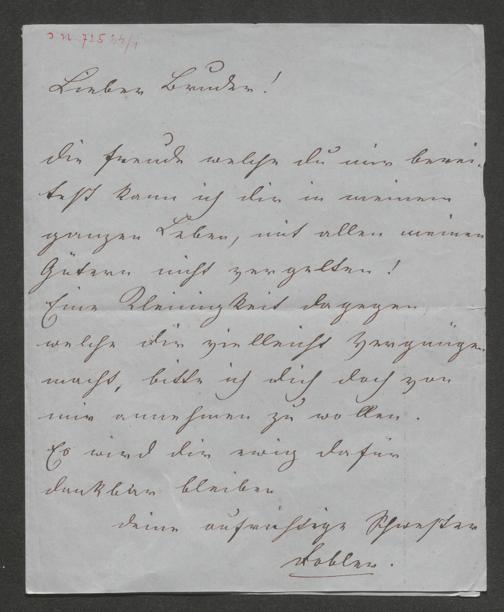 Lieber Bruder!
die Freude welche du mir berei-
test kann ich dir in meinem
ganzen Leben, mit allen meinen
Gütern nicht vergelten!
Eine Kleinigkeit dagegen
welche dir vielleicht Vergnügen
macht, bitte ich dich doch von
mir annehmen zu wollen.
Es wird dir ewig dafür
dankbar bleiben
deine aufrichtige Schwester
Dobler.